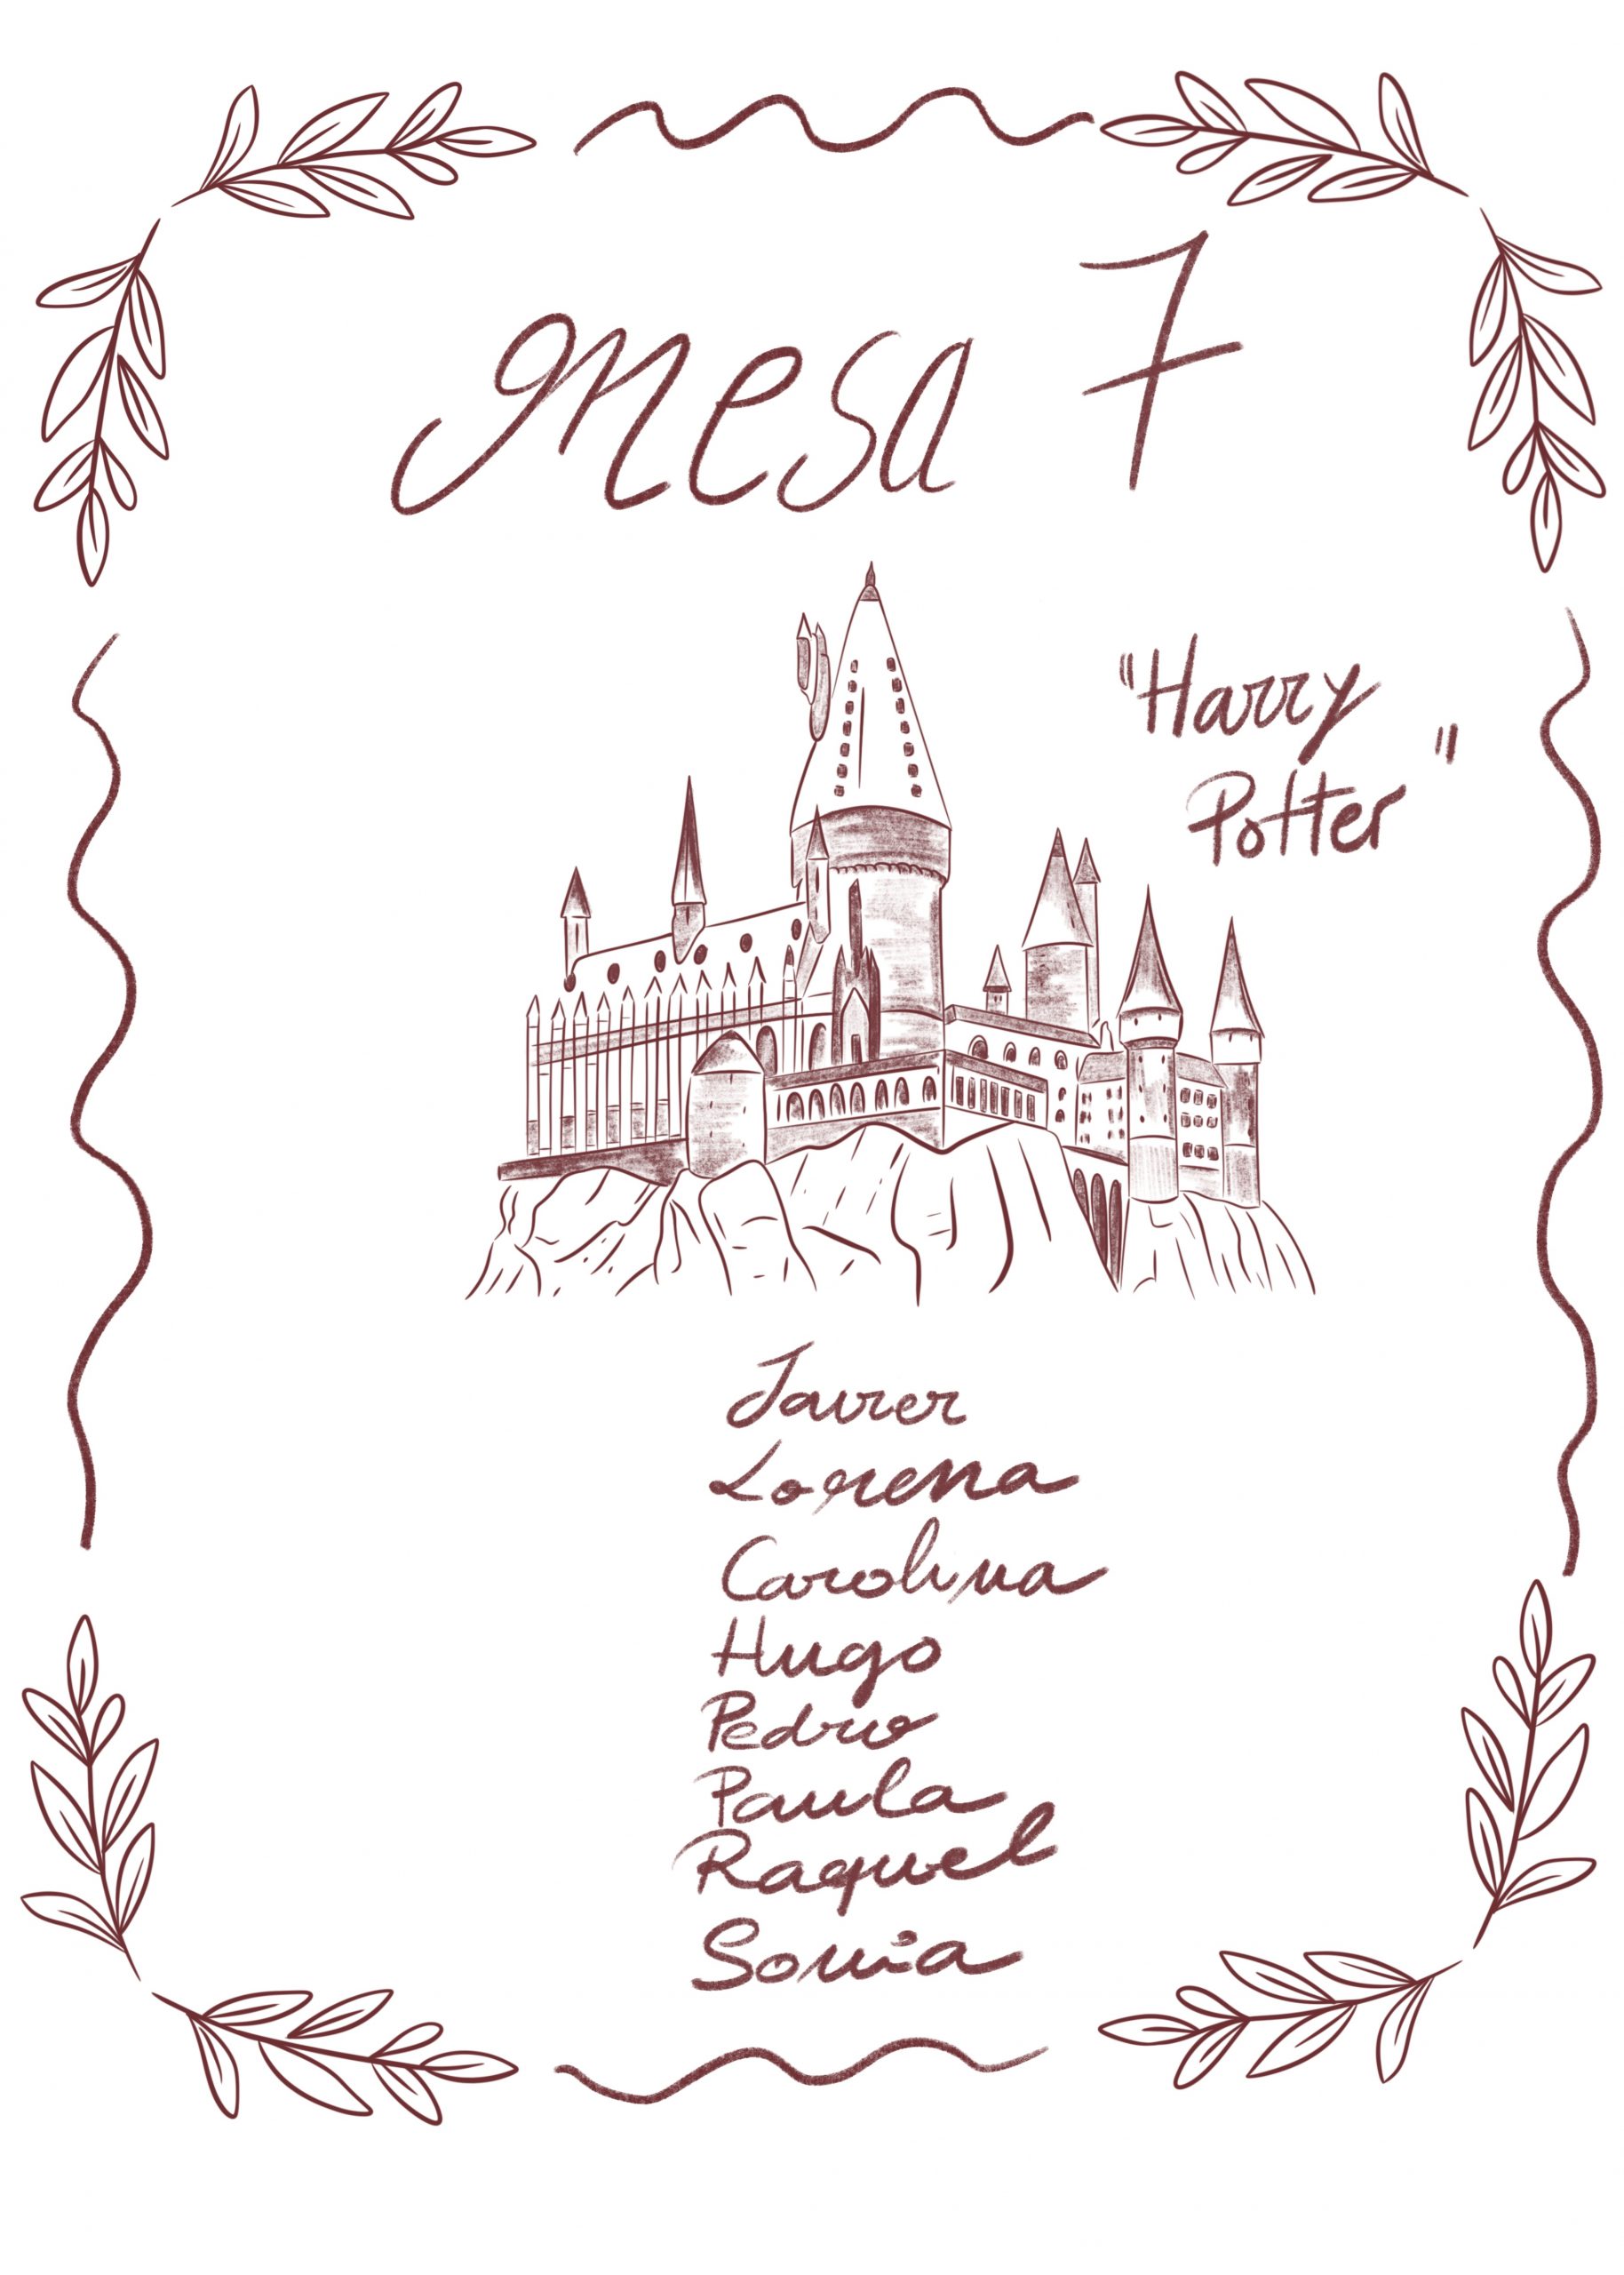 mesa 7
"Harry
Potter"
Javier
Lorena
Carolina
Hugo
Pedro
Paula
Raquel
Sonia